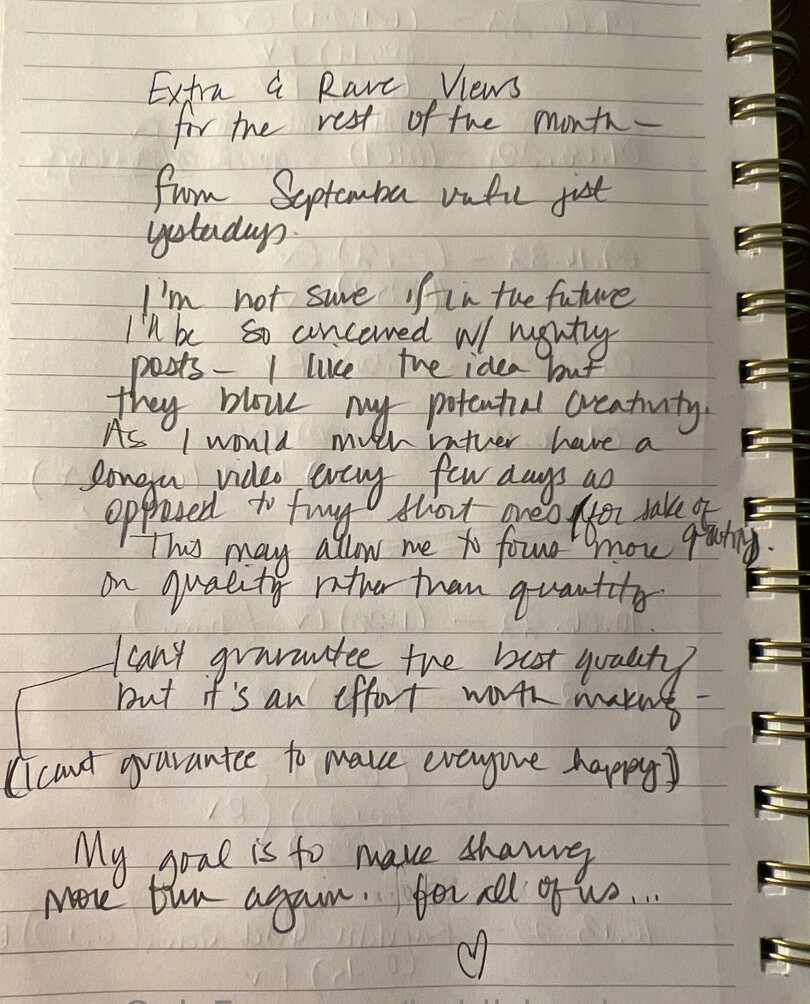 Extra & Rare Views
for the rest of the month—
from September until just
yesterdays.
I'm not sure if in the future
I'll be so concerned w/ nightly
posts— I like the idea but
they block my potential creativity.
As I would much rather have a
longer video every few days as
opposed to tiny short ones for sake of
This may allow me to focus more
on quality rather than quantity.
I can't guarantee the best quality
but it's an effort worth making—
(I can't guarantee to make everyone happy)
My goal is to make sharing
more fun again. for all of us...